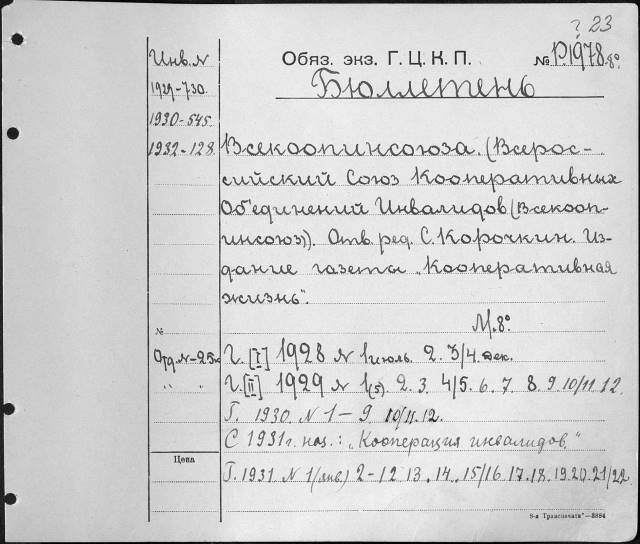 г 23
Инв. N
Обяз. экз. Г. Ц. К. П. № Р.1978. 8º
1929-730.
Бюллетень
1930-545.
1932-128.
Всекоопинсоюза. (Всерос-
сийский Союз Кооперативных
Об'единений Инвалидов (Всекооп-
инсоюз)). Отв. ред. С. Корочкин. Из-
дание газеты „Кооперативная
жизнь".
М. 8º
№
Г. [I] 1928 N 1 июль. 2. 3/4 дек.
" " Г. [II] 1929 N 1(5). 2. 3. 4/5. 6. 7. 8. 9. 10/11. 12.
Г. 1930. N 1-9. 10/11. 12.
С 1931 г. наз.: „Кооперация инвалидов."
Цена
Г. 1931 N 1 (янв) 2-12. 13. 14. 15/16. 17. 18. 19. 20. 21/22.
8-я „Транспечати"—3884